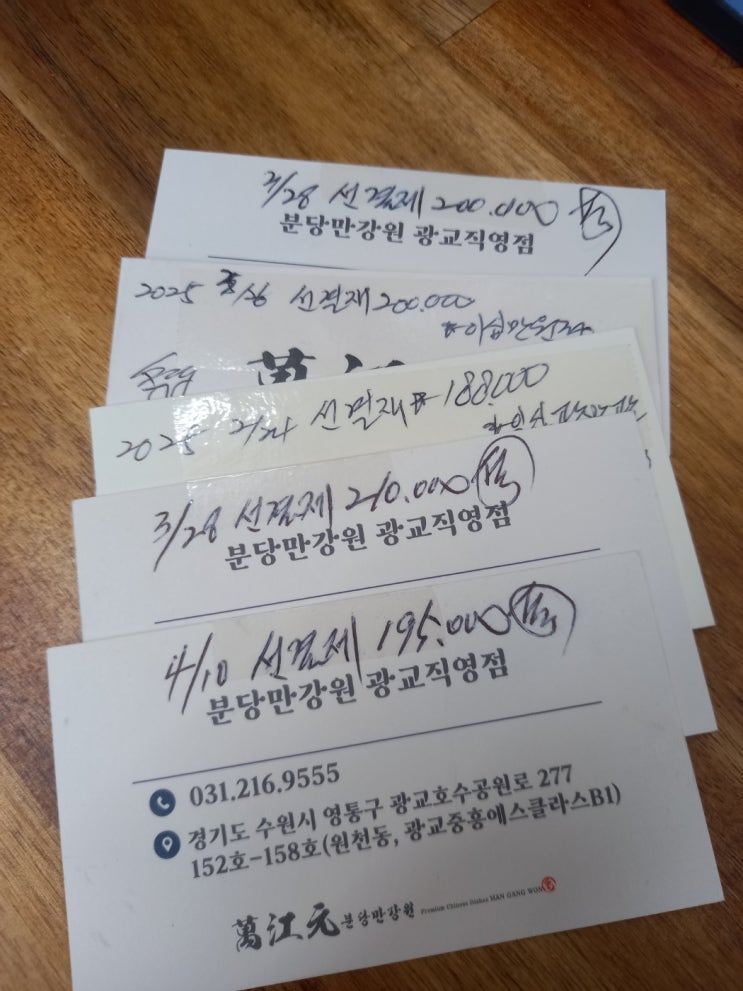 2/28 선결제 200.000
분당만강원 광교직영점
2025 2/26 선결재 200.000
萬江
2025 2/24 선결재 188.000
3/28 선결제 210.000
분당만강원 광교직영점
4/10 선결제 195.000
분당만강원 광교직영점
031.216.9555
경기도 수원시 영통구 광교호수공원로 277
152호-158호(원천동, 광교중흥에스클라스B1)
萬江元 분당만강원 Premium Chinese Dishes MAN GANG WON